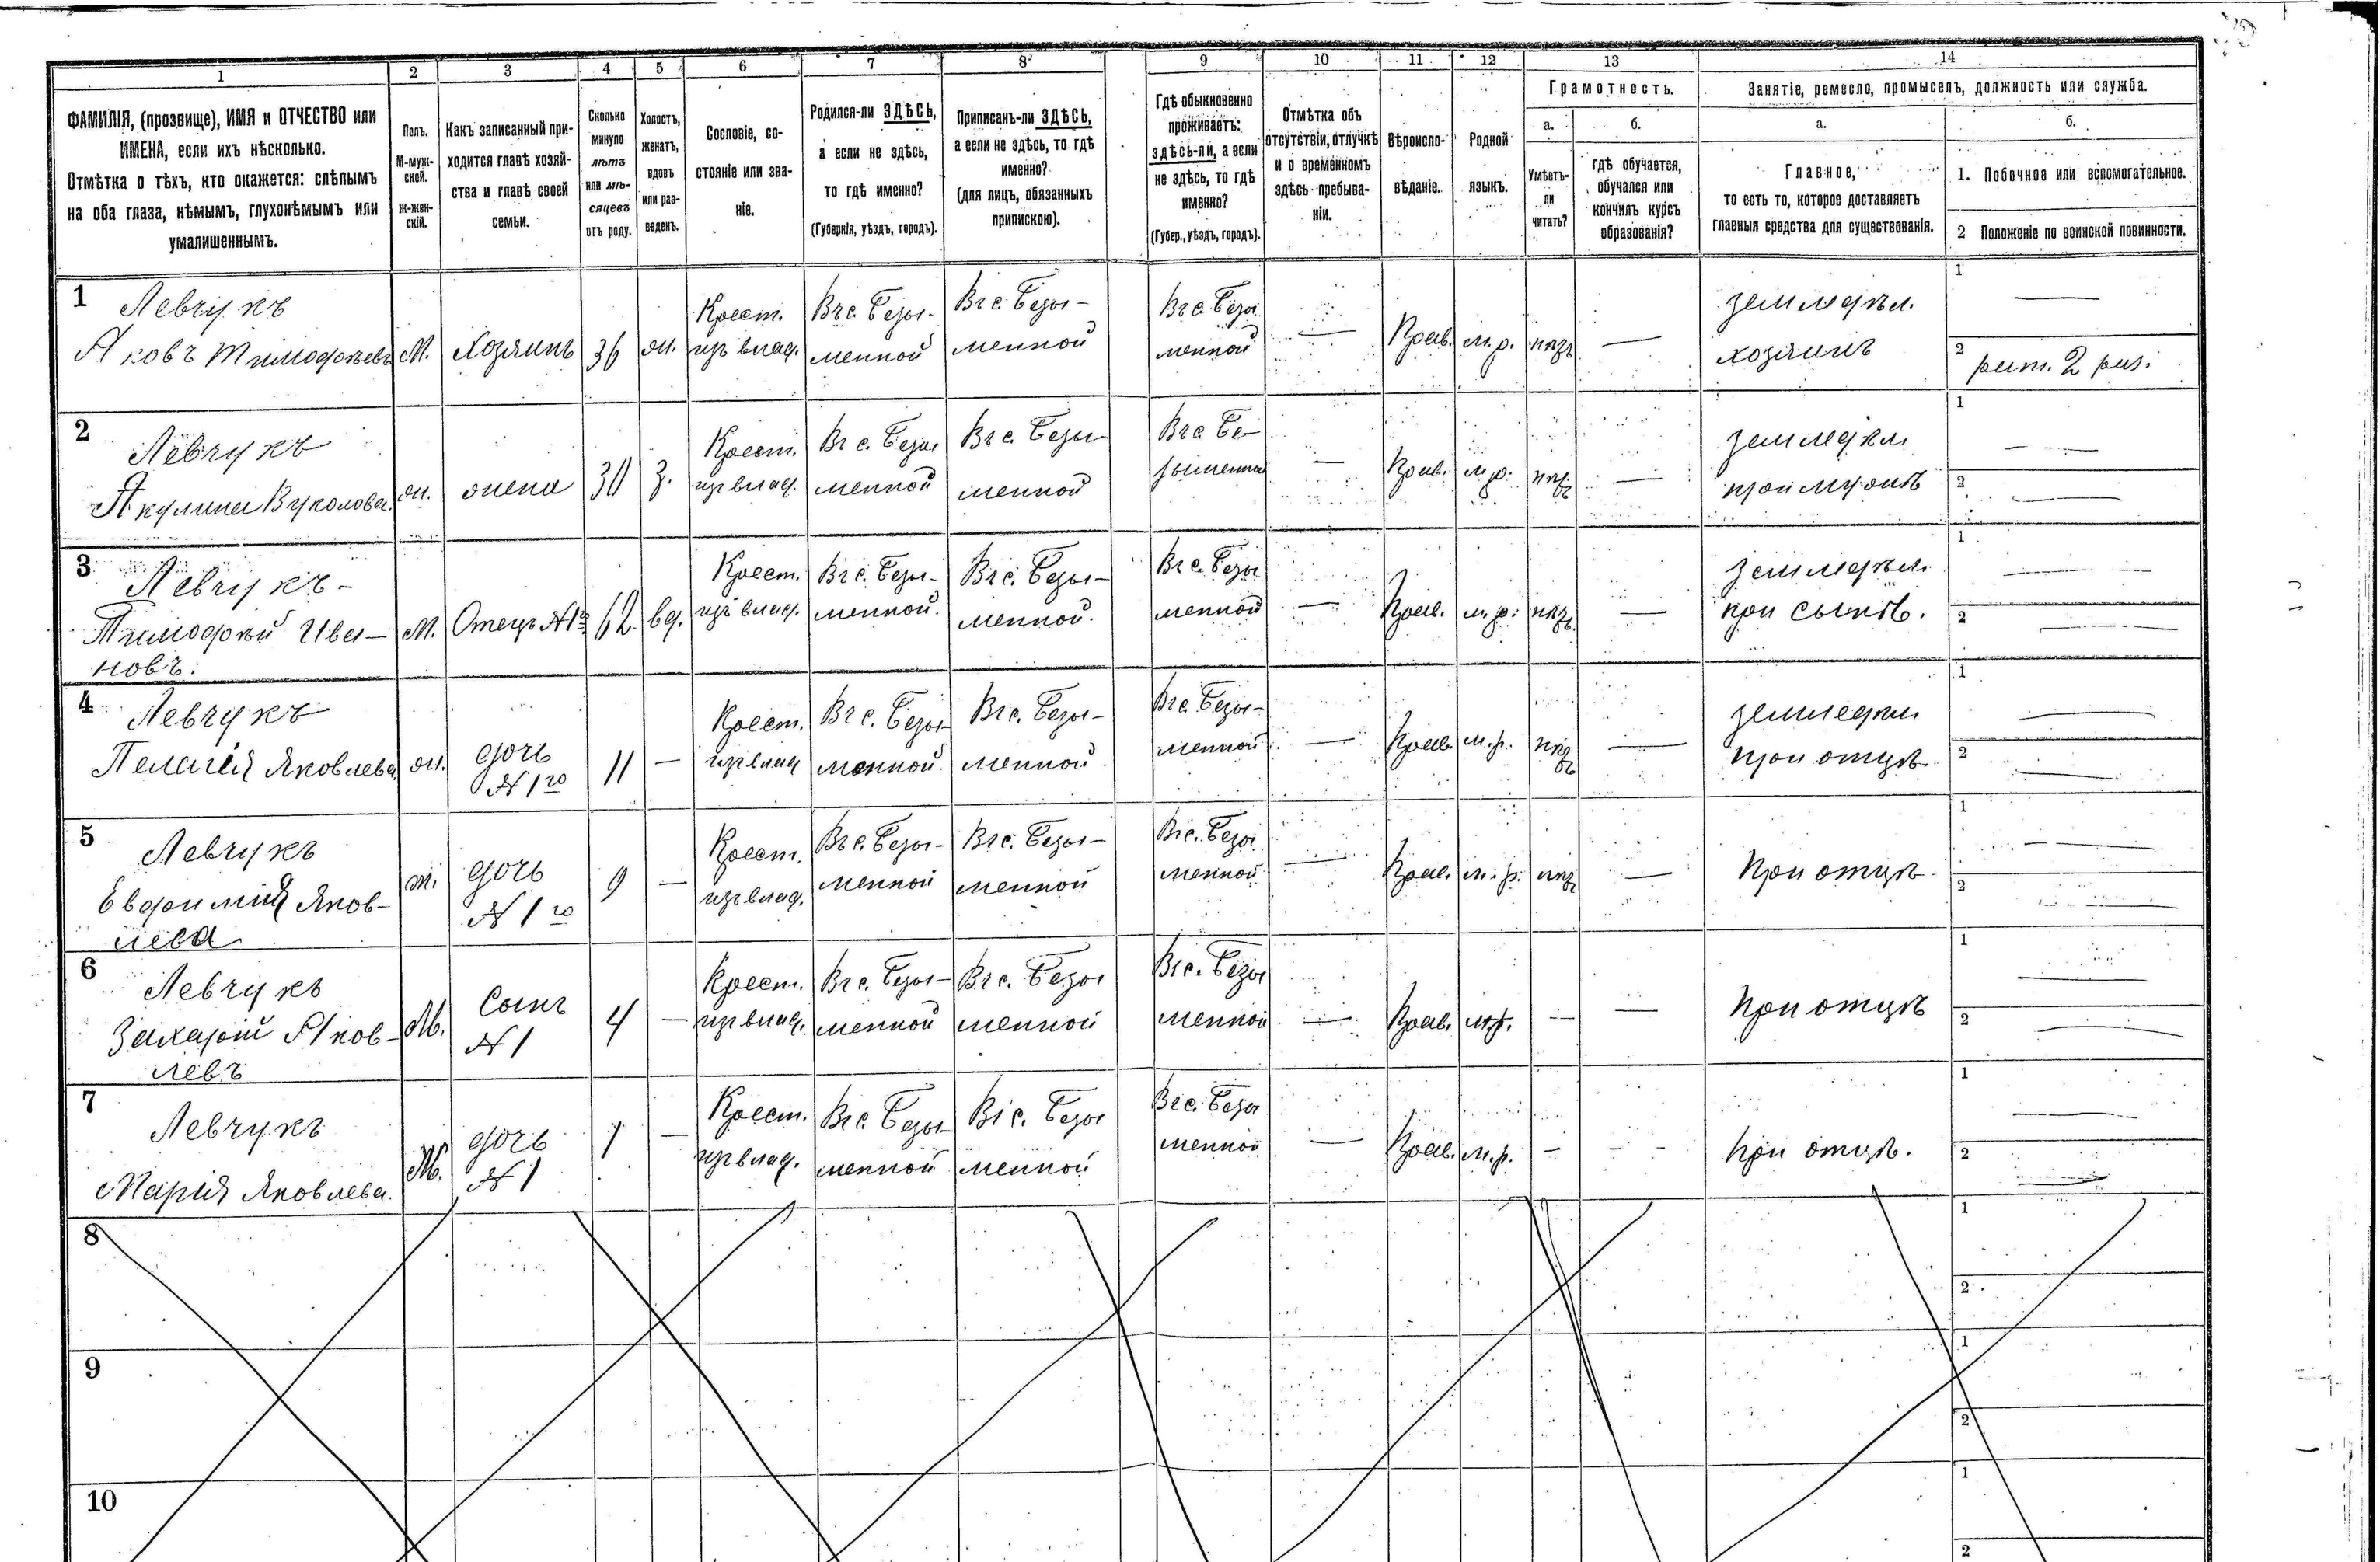 1 2 3 4 5 6 7 8 9 10 11 12 13 14
ФАМИЛІЯ, (прозвище), ИМЯ и ОТЧЕСТВО или
ИМЕНА, если ихъ нѣсколько.
Отмѣтка о тѣхъ, кто окажется: слѣпымъ
на оба глаза, нѣмымъ, глухонѣмымъ или
умалишеннымъ.
Полъ.
М-муж-
ской.
ж-жен-
скій.
Какъ записанный при-
ходится главѣ хозяй-
ства и главѣ своей
семьи.
Сколько
минуло
лѣтъ
или мѣ-
сяцевъ
отъ роду.
Холостъ,
женатъ,
вдовъ
или раз-
веденъ.
Сословіе, со-
стояніе или зва-
ніе.
Родился-ли ЗДѢСЬ,
а если не здѣсь,
то гдѣ именно?
(Губернія, уѣздъ, городъ).
Приписанъ-ли ЗДѢСЬ,
а если не здѣсь, то гдѣ
именно?
(для лицъ, обязанныхъ
припискою).
Гдѣ обыкновенно
проживаетъ:
здѣсь-ли, а если
не здѣсь, то гдѣ
именно?
(Губер., уѣздъ, городъ).
Отмѣтка объ
отсутствіи, отлучкѣ
и о временномъ
здѣсь пребыва-
ніи.
Вѣроиспо-
вѣданіе.
Родной
языкъ.
Грамотность.
а.
Умѣетъ-
ли
читать?
б.
гдѣ обучается,
обучался или
кончилъ курсъ
образованія?
Занятіе, ремесло, промыселъ, должность или служба.
а.
Главное,
то есть то, которое доставляетъ
главныя средства для существованія.
б.
1. Побочное или вспомогательное.
2 Положеніе по воинской повинности.
1 Левчукъ
Яковъ Тимофѣевъ
М.
Хозяинъ
36
ж.
Крест.
изъ влад.
В г с. Безы-
менной
В г с. Безы-
менной
В г с. Безы
менной
—
Прав.
м.р.
нѣтъ
—
земледѣл.
хозяинъ
1 —
2 рат. 2 раз.
2 Левчукъ
Акулина Вуколова
ж.
жена
30
з.
Крест.
изъ влад.
В г с. Безы
менной
В г с. Безы
менной
В г с. Бе-
зыменной
—
Прав.
м.р.
нѣтъ
—
земледѣл
при мужѣ
1 —
2 —
3 Левчукъ-
Тимофѣй Ива-
новъ.
М.
Отецъ №1го
62
вд.
Крест.
изъ влад.
В г с. Безы-
менной.
В г с. Безы-
менной.
В г с. Безы
менной
—
Прав.
м.р.
нѣтъ
—
земледѣл.
при сынѣ.
1 —
2 —
4 Левчукъ
Пелагія Яковлева
ж.
дочь
№ 1го
11
—
Крест.
изъ влад
В г с. Безы
менной.
В г с. Безы-
менной
В г с. Безы-
менной
—
Прав.
м.р.
нѣтъ
—
земледѣл
при отцѣ.
1 —
2 —
5 Левчукъ
Евфимія Яков-
лева
ж.
дочь
№ 1го
9
—
Крест.
изъ влад.
В г с. Безы-
менной
В г с. Безы-
менной
В г с. Безы
менной
—
Прав.
м.р.
нѣтъ
—
При отцѣ
1 —
2 —
6 Левчукъ
Захарій Яков-
левъ
М.
Сынъ
№ 1
4
—
Крест.
изъ влад.
В г с. Безы-
менной
В г с. Безы
менной
В г с. Безы
менной
—
Прав.
м.р.
—
—
При отцѣ
1 —
2 —
7 Левчукъ
Марія Яковлева.
Ж.
дочь
№ 1
1
—
Крест.
изъ влад.
В г с. Безы
менной
В г с. Безы
менной
В г с. Безы
менной
—
Прав.
м.р.
—
—
При отцѣ.
1 —
2 —
8
1
2
9
1
2
10
1
2